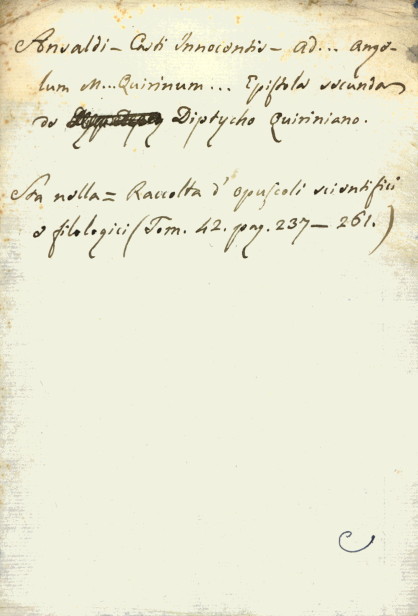 Ansaldi - Casti Innocentis - Ad... Ange-
lum M... Quirinum... Epistola secunda
de Diptycho Quiriniano.
Sta nella = Raccolta d' opuscoli scientifici
e filologici (Tom. 42. pag. 237 - 261.)